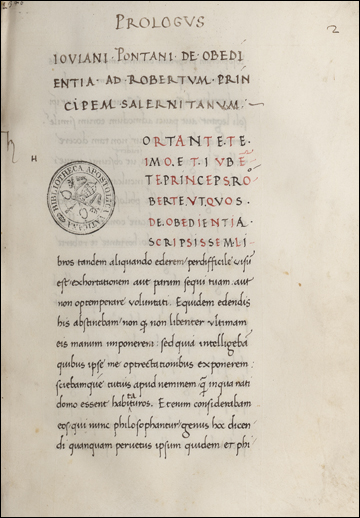 PROLOGVS
2
IOVIANI · PONTANI · DE · OBEDI
ENTIA · AD · ROBERTVM · PRIN
CIPEM SALERNITANVM
H
ORTANTE · TE ·
IMO · E · T · IVBE
TE PRINCEPS RO
BERTE VT QVOS ·
DE · OBEDIENTIA ·
SCRIPSISSEM · LI
BIBLIOTHECA APOSTOLICA VATICANA
bros tandem aliquando ederem / perdifficile uisu
est exhortationem aut parum sequi tuam aut
non optemperare voluntati. Equidem edendis
his abstinebam / non q libenter ultimam
eis manum imponerem : sed quia intelligeba
quibus ipse me optrectationibus exponerem :
sciebamque tutius apud neminem q̃ inqua nati
domo essent habitaturos. Etenim considerabam
eos qui nunc philosophantur / genus hoc dicen
di quanquam peruetus ipsum quidem et phi